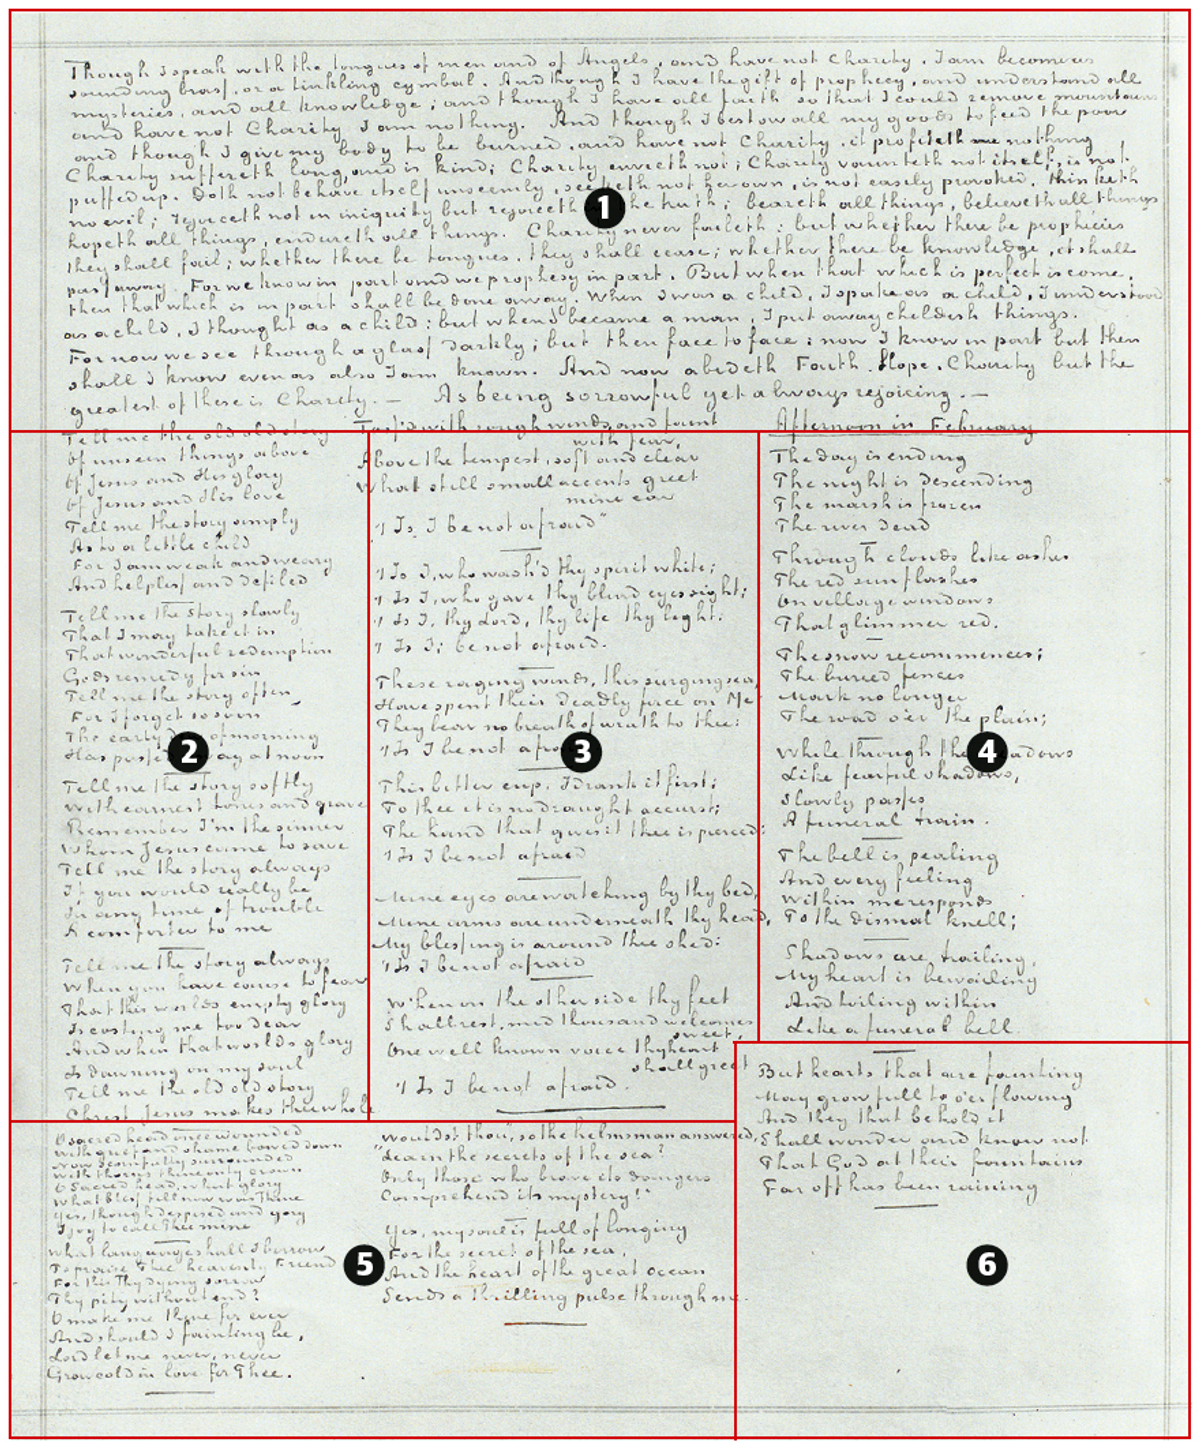 Though I speak with the tongues of men and of Angels, and have not Charity, I am become as
sounding brass, or a tinkling cymbal. And though I have the gift of prophecy, and understand all
mysteries, and all knowledge; and though I have all faith so that I could remove mountains
and have not Charity I am nothing. And though I bestow all my goods to feed the poor
and though I give my body to be burned, and have not Charity, it profiteth me nothing
Charity suffereth long, and is kind; Charity envieth not; Charity vaunteth not itself, is not
puffed up. Doth not behave itself unseemly, seeketh not her own, is not easily provoked, thinketh
no evil; rejoiceth not in iniquity but rejoiceth the truth; beareth all things, believeth all things
hopeth all things, endureth all things. Charity never faileth: but whether there be prophecies
they shall fail; whether there be tongues, they shall cease; whether there be knowledge, it shall
pass away. For we know in part and we prophesy in part. But when that which is perfect is come,
then that which is in part shall be done away. When I was a child, I spake as a child, I understood
as a child, I thought as a child: but when I became a man, I put away childish things.
For now we see through a glass darkly; but then face to face: now I know in part but then
shall I know even as also I am known. And now abideth Faith, Hope, Charity but the
greatest of these is Charity. — As being sorrowful yet always rejoicing. —
1
Tell me the old old story
Of unseen things above
Of Jesus and His glory
Of Jesus and His love
Tell me the story simply
As to a little child
For I am weak and weary
And helpless and defiled
Tell me the story slowly
That I may take it in
That wonderful redemption
Gods remedy for sin
Tell me the story often
For I forget so soon
The early of morning
Has passed away at noon
2
Tell me the story softly
With earnest tones and grave
Remember I'm the sinner
Whom Jesus came to save
Tell me the story always
If you would really be
In any time of trouble
A comforter to me
Tell me the story always
When you have cause to fear
That this worlds empty glory
Is costing me too dear
And when that worlds glory
Is dawning on my soul
Tell me the old old story
Christ Jesus makes thee whole
Toss'd with rough winds, and faint
with fear,
Above the tempest, soft and clear
What still small accents greet
mine ear
'T Is I be not afraid"
'T Is I, who wash'd thy spirit white;
'T Is I, who gave thy blind eyes sight;
'T Is I, thy Lord, thy life thy light:
'T Is I; be not afraid.
These raging winds, this surging sea,
Have spent their deadly force on Me
They bear no breath of wrath to thee:
'T Is I be not afraid
3
This bitter cup, I drank it first;
To thee it is no draught accurst;
The hand that gives it thee is pierced:
'T Is I be not afraid
Mine eyes are watching by thy bed,
Mine arms are underneath thy head,
My blessing is around thee shed:
'T Is I be not afraid
When on the other side thy feet
Shall rest, mid thousand welcomes
sweet,
One well known voice thy heart
shall greet
'T Is I be not afraid.
Afternoon in February
The day is ending
The night is descending
The marsh is frozen
The river dead
Through clouds like ashes
The red sun flashes
On village windows
That glimmer red.
The snow recommences;
The buried fences
Mark no longer
The road o'er the plain;
While through the meadows
Like fearful shadows,
Slowly passes
A funeral train.
4
The bell is pealing
And every feeling
Within me responds
To the dismal knell;
Shadows are trailing,
My heart is bewailing
And toiling within
Like a funeral bell.
O sacred head once wounded
With grief and shame bowed down
Now scornfully surrounded
With thorns thine only crown
O Sacred head, what glory
What bliss till now was Thine
Yes, though despised and gory
I joy to call Thee mine
What language shall I borrow
To praise Thee heavenly Friend
For this Thy dying sorrow
Thy pity without end?
O make me thine for ever
And should I fainting be,
Lord let me never, never
Grow cold in love for Thee.
5
Wouldst thou", so the helmsman answered,
"Learn the secrets of the sea?
Only those who brave its dangers
Comprehend its mystery!"
Yes, my soul is full of longing
For the secret of the sea,
And the heart of the great ocean
Sends a thrilling pulse through me.
But hearts that are fainting
May grow full to o'er flowing
And they that behold it
Shall wonder and know not
That God at their fountains
Far off has been raining
6